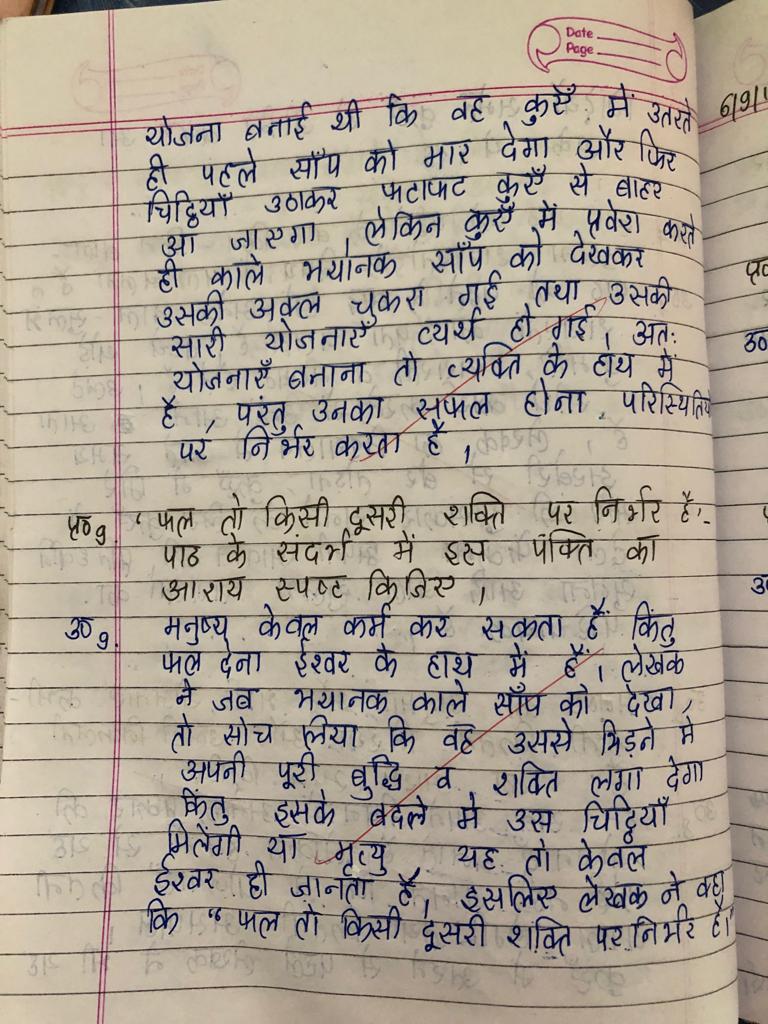 Date
Page
योजना बनाई थी कि वह कुएँ में उतरते
ही पहले साँप को मार देगा और फिर
चिट्ठियाँ उठाकर फटाफट कुएँ से बाहर
आ जाएगा, लेकिन कुएँ में प्रवेश करते
ही काले भयानक साँप को देखकर
उसकी अक्ल चुकरा गई तथा उसकी
सारी योजनाएँ व्यर्थ हो गई, अतः
योजनाएँ बनाना तो व्यक्ति के हाथ में
है, परंतु उनका सफल होना परिस्थितियों
पर निर्भर करता है,
प्र०9. "फल तो किसी दूसरी शक्ति पर निर्भर है'-
पाठ के संदर्भ में इस पंक्ति का
आशय स्पष्ट किजिए,
उ०9. मनुष्य केवल कर्म कर सकता हैं किंतु
फल देना ईश्वर के हाथ में हैं, लेखक
ने जब भयानक काले साँप को देखा,
तो सोच लिया कि वह उससे भिड़ने मे
अपनी पूरी बुद्धि व शक्ति लगा देगा
किंतु इसके बदले में उस चिट्ठियाँ
मिलेंगी या मृत्यु यह तो केवल
ईश्वर ही जानता है, इसलिए लेखक ने कहा
कि "फल तो किसी दूसरी शक्ति पर निर्भर है।"
6/9/
उ०